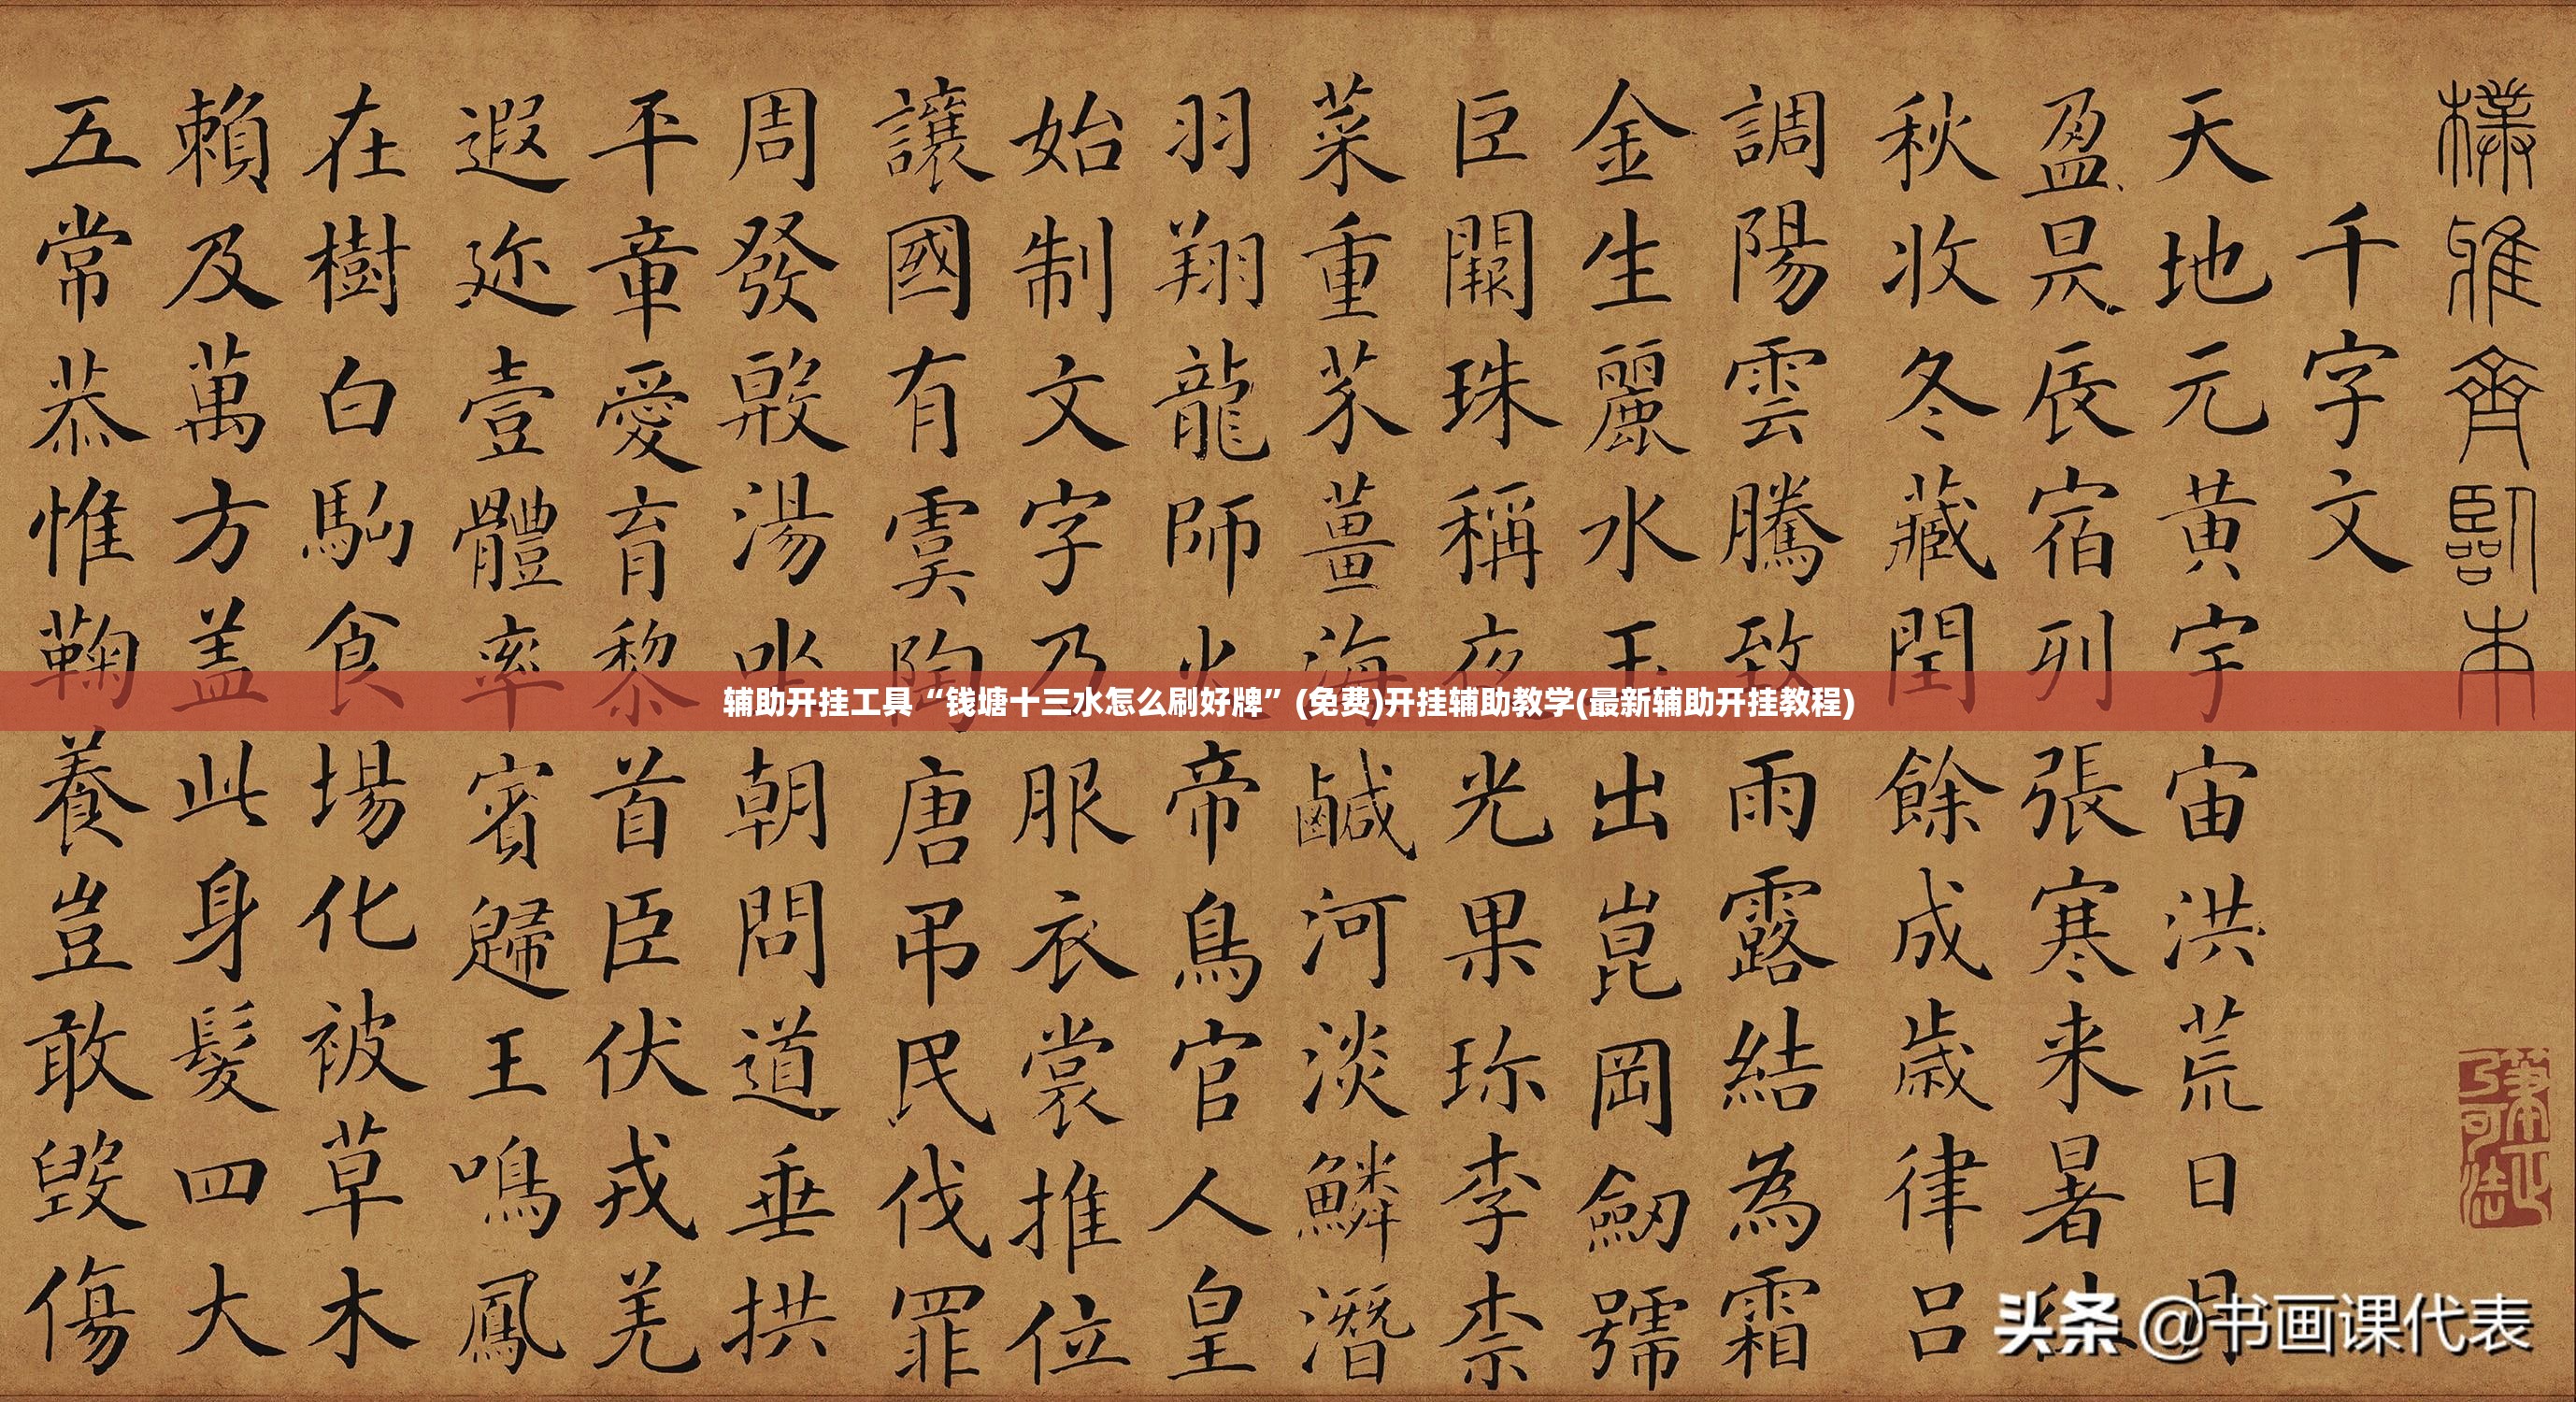 樸雅齋臨本
千字文
天地元黃宇宙洪荒日月
盈昃辰宿列張寒来暑
秋收冬藏閏餘成歲律吕
調陽雲騰致雨露結為霜
金生麗水玉出崑岡劒號
巨闕珠稱夜光果珎李柰
菜重芥薑海鹹河淡鱗潛
羽翔龍師火帝鳥官人皇
始制文字乃服衣裳推位
讓國有虞陶唐弔民伐罪
周發殷湯坐朝問道垂拱
平章愛育黎首臣伏戎羌
遐迩壹體率賓歸王鳴鳳
在樹白駒食場化被草木
賴及萬方盖此身髮四大
五常恭惟鞠養豈敢毀傷
辅助开挂工具“钱塘十三水怎么刷好牌”(免费)开挂辅助教学(最新辅助开挂教程)
头条 @书画课代表